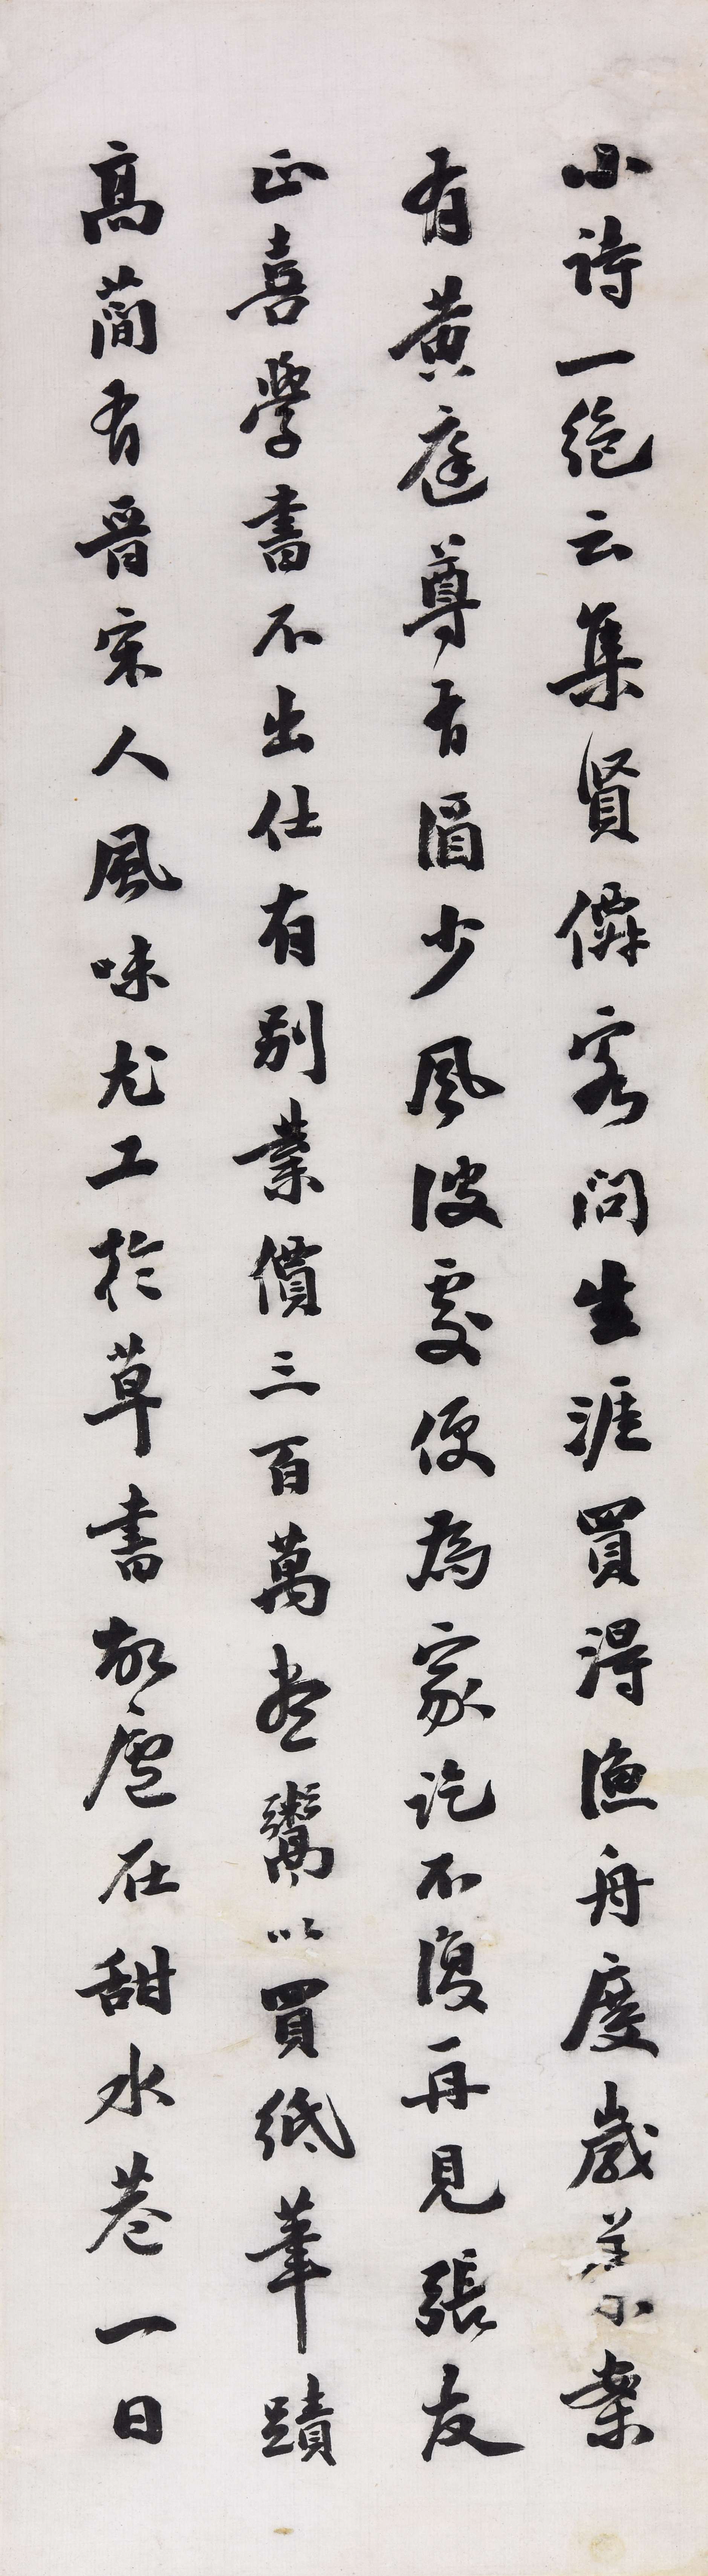 小詩一絶云集賢僊客問生涯買得漁舟度歲案
有黃庭尊有酒少風波處便為家訖不復再見張友
正喜學書不出仕有別業價三百萬盡鬻以買紙筆蹟
高蕳有晉宋人風味尤工於草書故廬在甜水巷一日